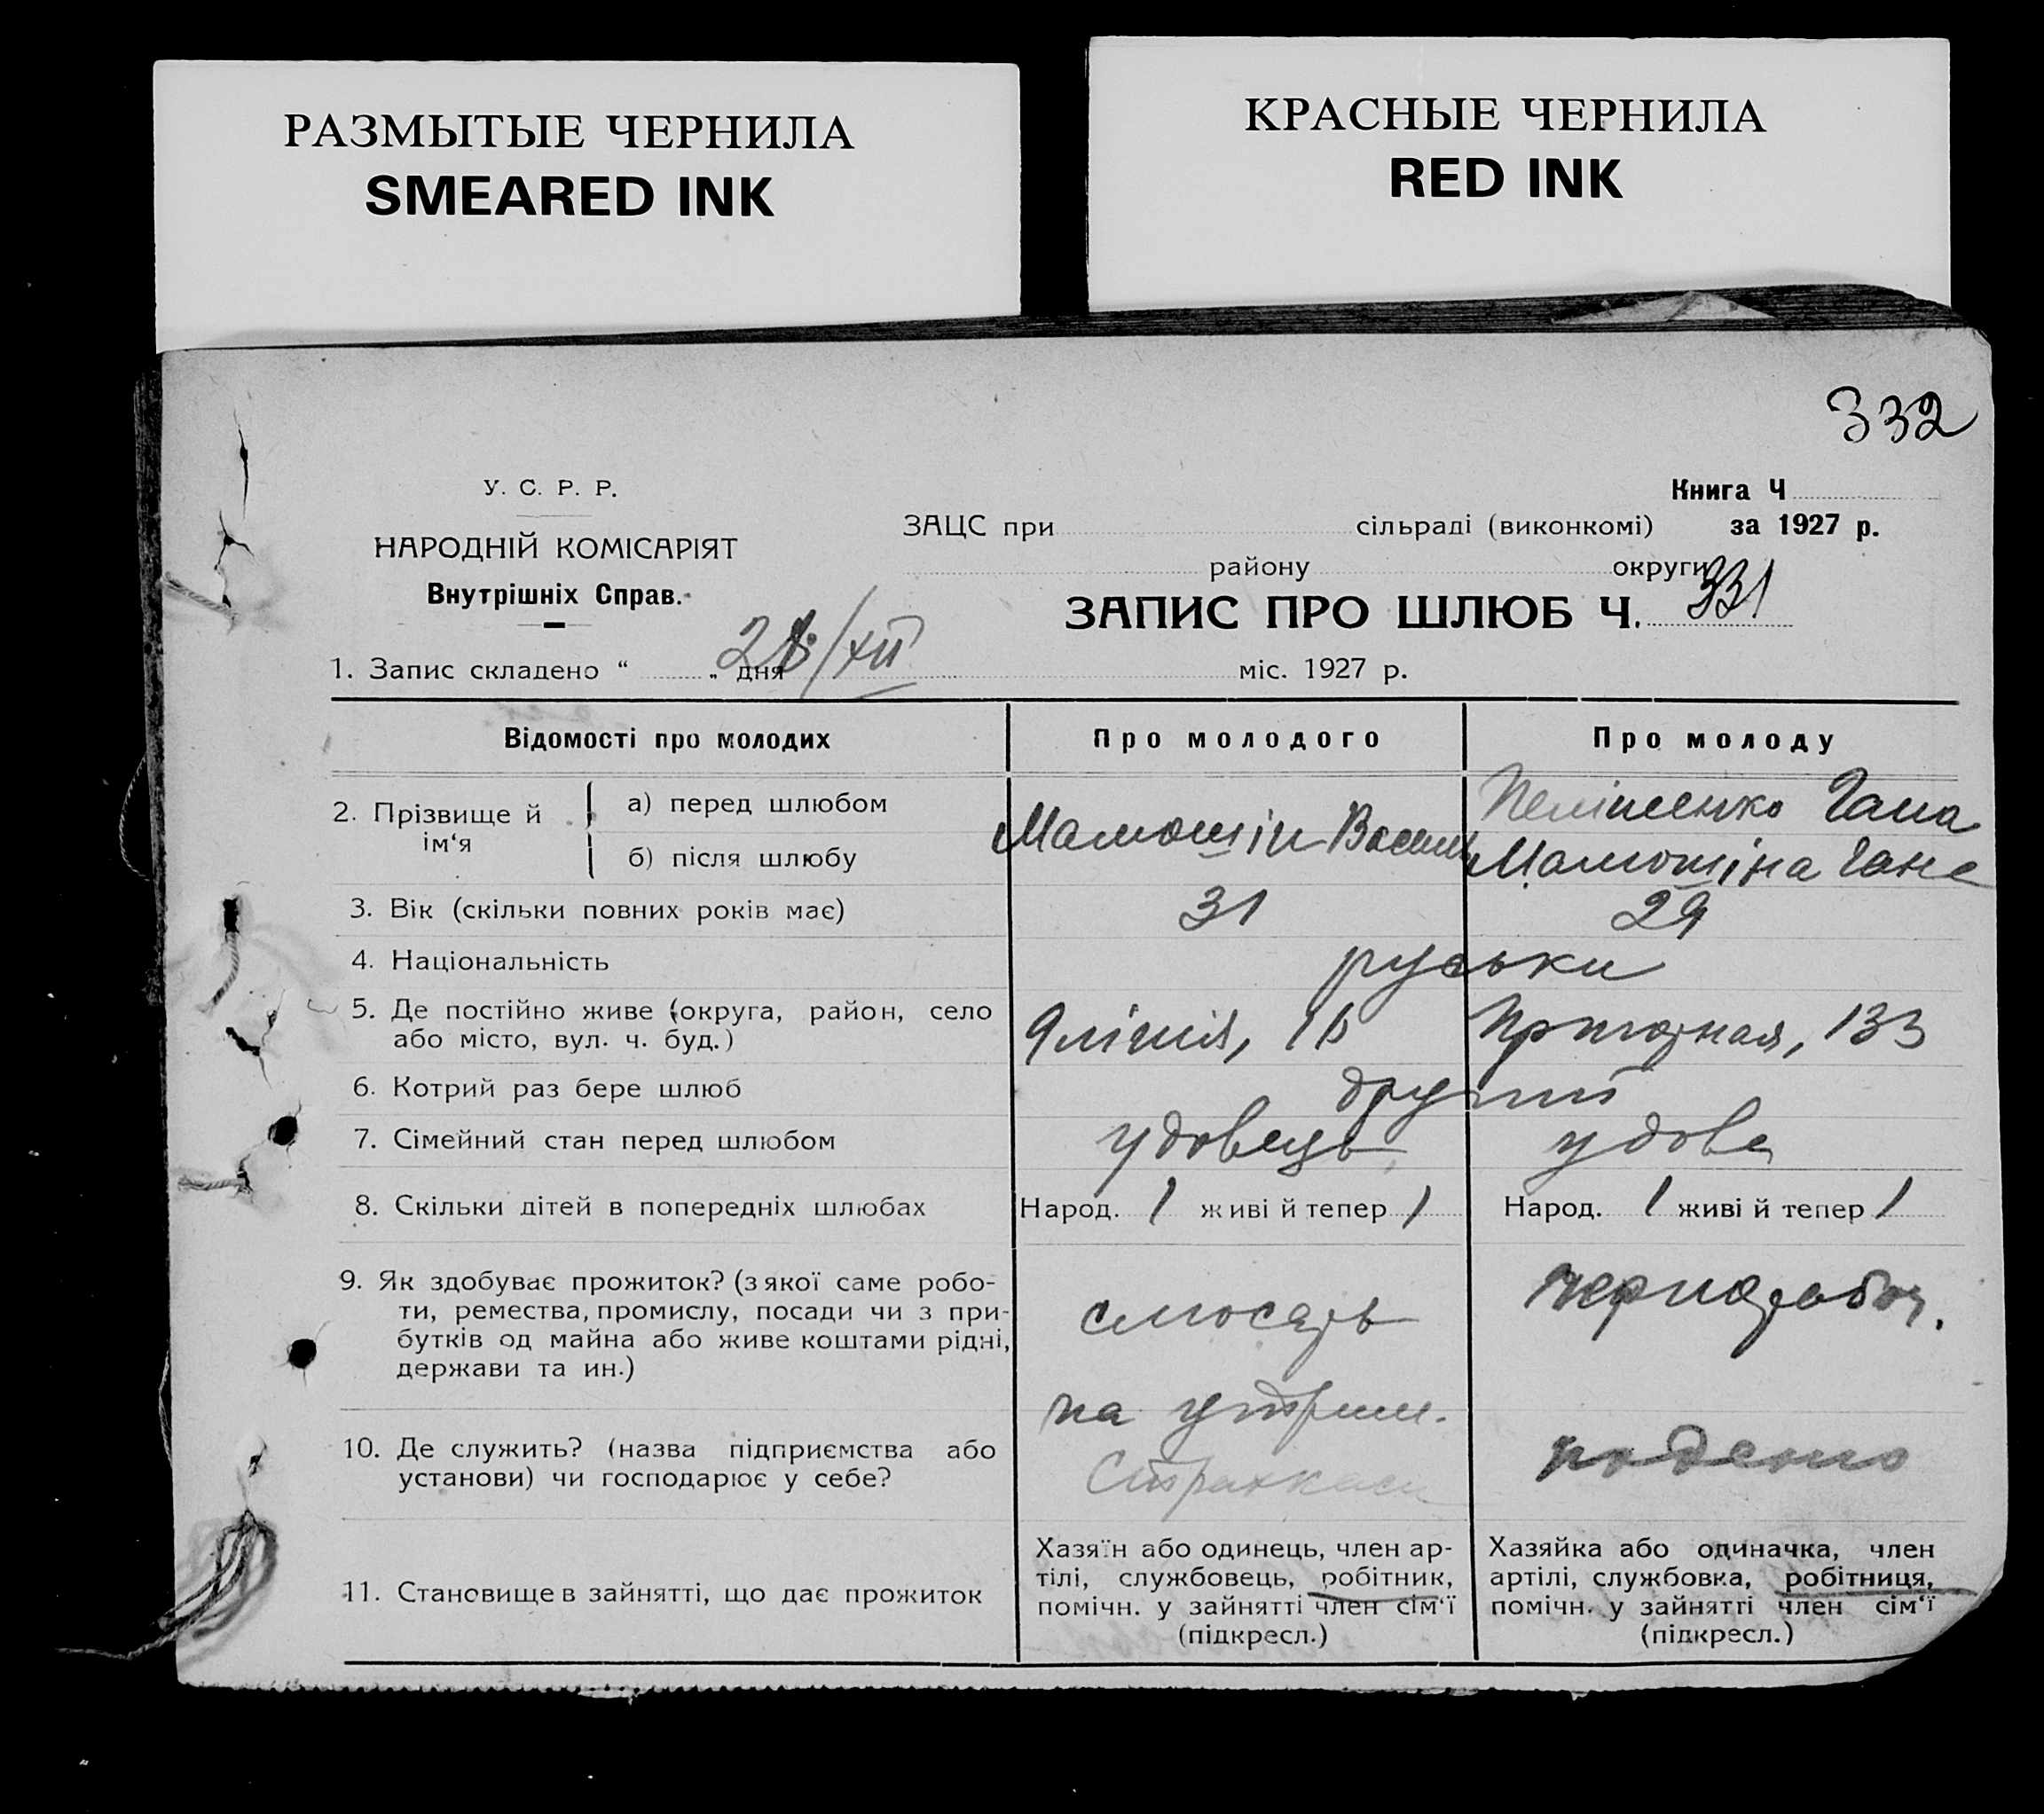 РАЗМЫТЫЕ ЧЕРНИЛА
SMEARED INK
КРАСНЫЕ ЧЕРНИЛА
RED INK
332
У. С. Р. Р.
НАРОДНІЙ КОМІСАРІЯТ
Внутрішніх Справ.
Книга Ч
ЗАЦС при сільраді (виконкомі) за 1927 р.
району округи
ЗАПИС ПРО ШЛЮБ Ч. 331
1. Запис складено “ „ дня 28/XII міс. 1927 р.
Відомості про молодих Про молодого Про молоду
2. Прізвище й ім‘я
а) перед шлюбом Гана
б) після шлюбу Мамошін Василь Мамошіна Гана
3. Вік (скільки повних років має) 31 29
4. Національність руськи
5. Де постійно живе (округа, район, село
або місто, вул. ч. буд.) 9 лінія, 133
6. Котрий раз бере шлюб другий
7. Сімейний стан перед шлюбом удовець удова
8. Скільки дітей в попередніх шлюбах Народ. 1 живі й тепер 1 Народ. 1 живі й тепер 1
9. Як здобуває прожиток? (з якої саме робо-
ти, ремества, промислу, посади чи з при-
бутків од майна або живе коштами рідні,
держави та ин.)
слюсарь
чернороботн.
10. Де служить? (назва підприємства або
установи) чи господарює у себе?
на утрим.
Страхкаси
поденно
11. Становище в зайнятті, що дає прожиток
Хазяїн або одинець, член ар-
тілі, службовець, робітник,
помічн. у зайнятті член сім‘ї
(підкресл.)
Хазяйка або одиначка, член
артілі, службовка, робітниця,
помічн. у зайнятті член сім‘ї
(підкресл.)